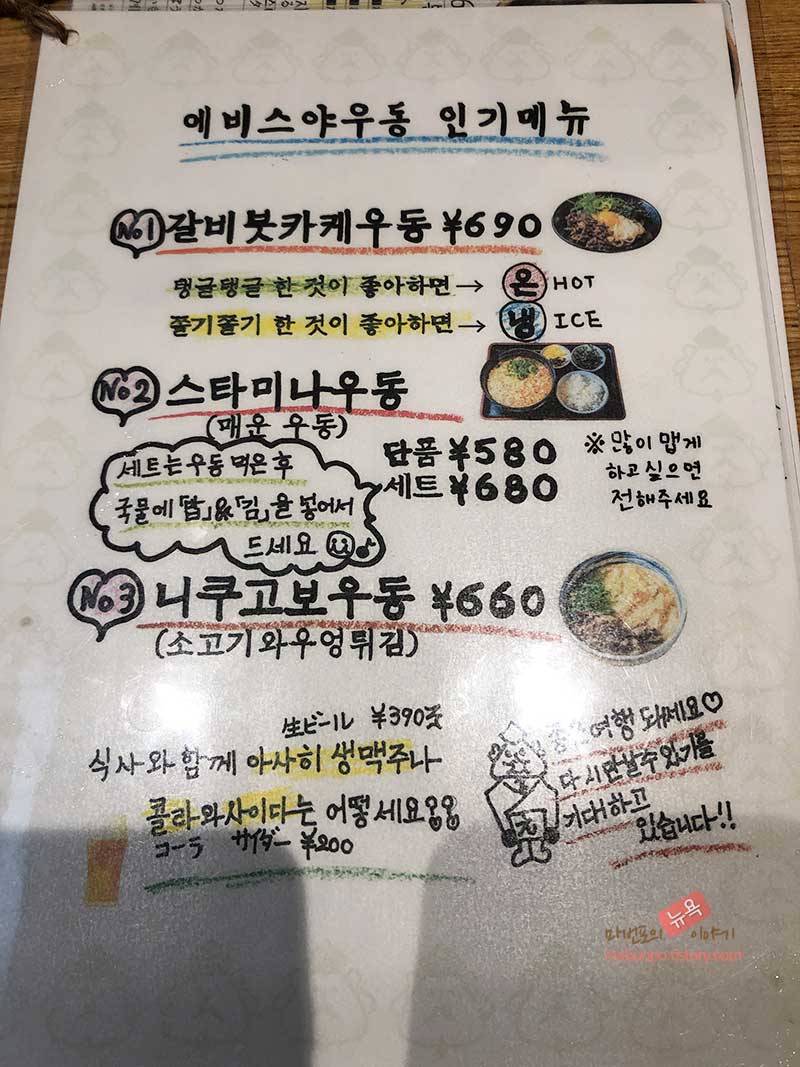 에비스야우동 인기메뉴
No1 갈비붓카케우동 ¥690
탱글탱글 한 것이 좋아하면→ 온 HOT
쫄기쫄기 한 것이 좋아하면→ 냉 ICE
No2 스타미나우동
(매운 우동)
단품 ¥580
세트 ¥680
※많이 맵게
하고싶으면
전해주세요
세트는 우동 먹은 후
국물에「밥」&「김」을 넣어서
드세요
No3 니쿠고보우동 ¥660
(소고기와우엉튀김)
生ビール ¥390
식사와 함께 아사히 생맥주나
콜라와사이다는 어떻세요
コーラ サイダー ¥200
여행 돼세요♡
다시만날수있기를
기대하고
있습니다!!
마번포의 뉴욕 이야기